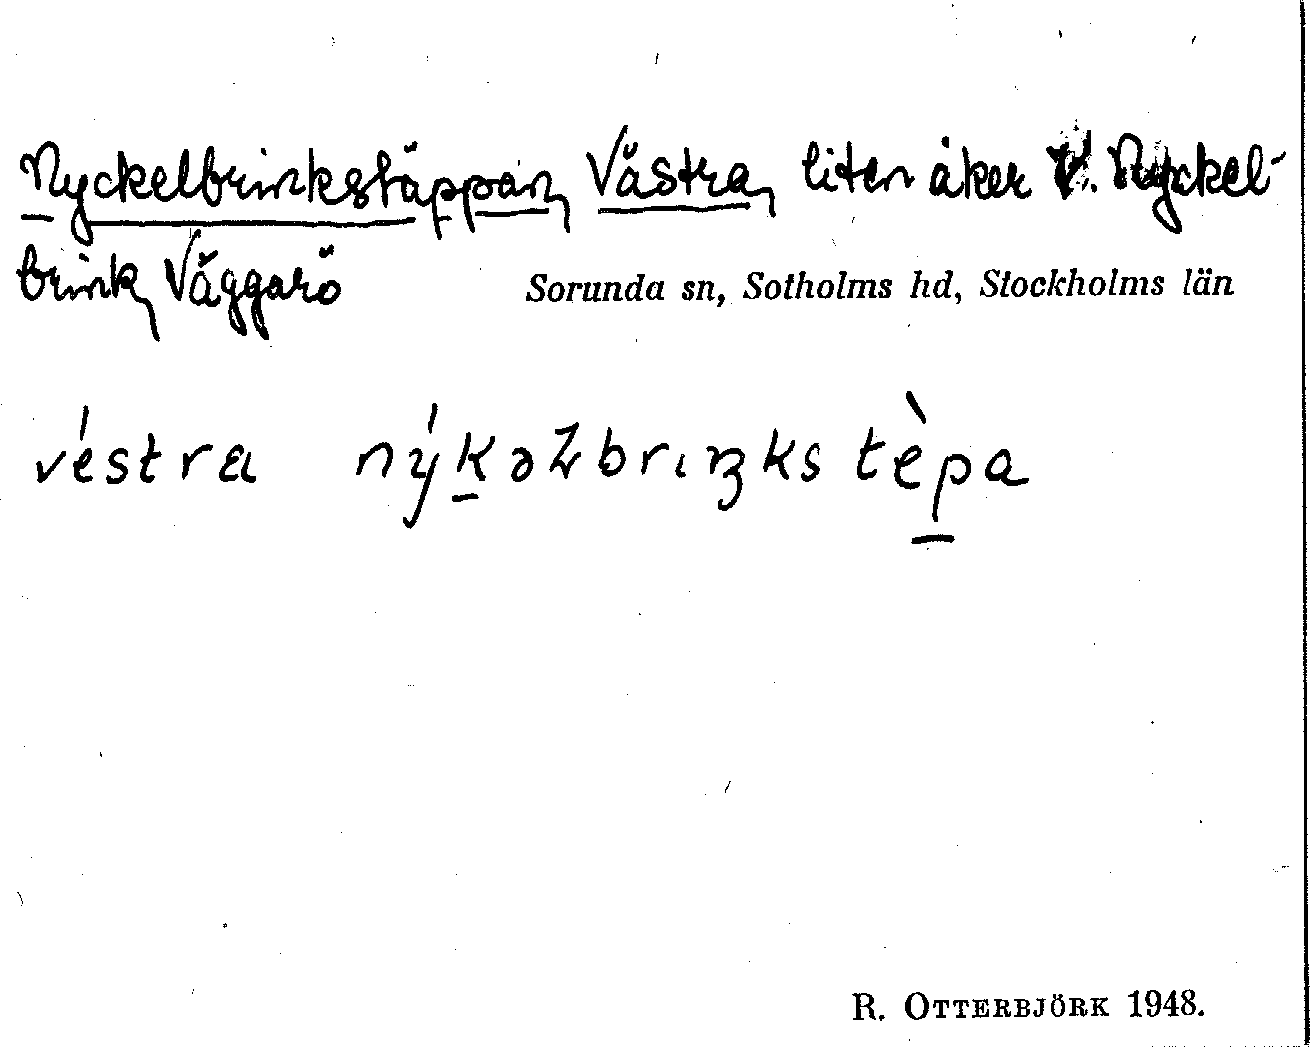 Nyckelbrinkstäppan, Västra, liten åker V. Nyckel-
brink, Väggarö Sorunda sn, Sotholms hd, Stockholms län
véstra ný̱kəlbriŋkstèp̱a
R. OTTERBJÖRK 1948.